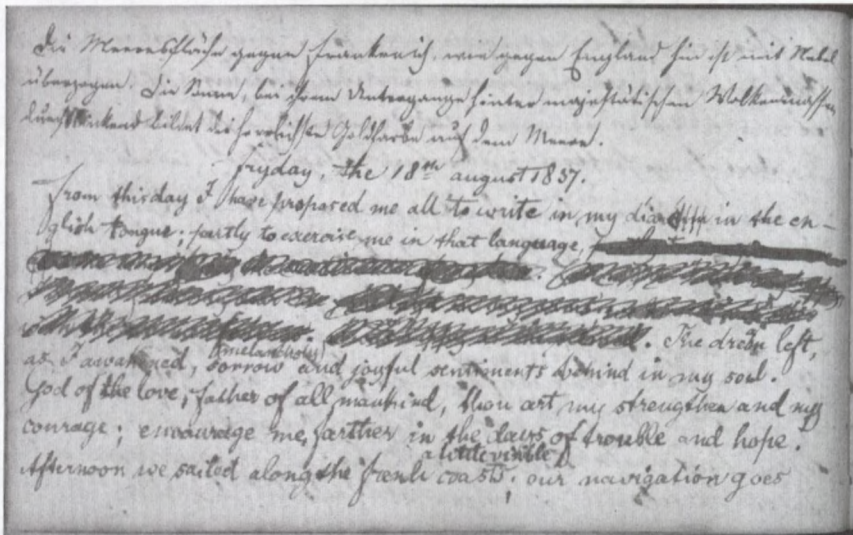 Die Meeresfläche gegen Frankreich, wie gegen England hin ist mit Nebel
überzogen. Die Sonne, bei ihrem Untergange hinter majestätischen Wolkenmassen
durchblickend bildet die herrlichsten Goldfarbe auf dem Meere.
Fryday, the 18th august 1837.
From this day I have proposed me all to write in my diary in the en-
glish tongue; partly to exercise me in that language,
. The dream left,
(melancholy)
as I awakened, sorrow and joyful sentiments behind in my soul.
God of the love, father of all mankind, thou art my strengthen and my
courage; encourage me farther in the days of trouble and hope.
a little visible
Afternoon we sailed along the french coasts; our navigation goes